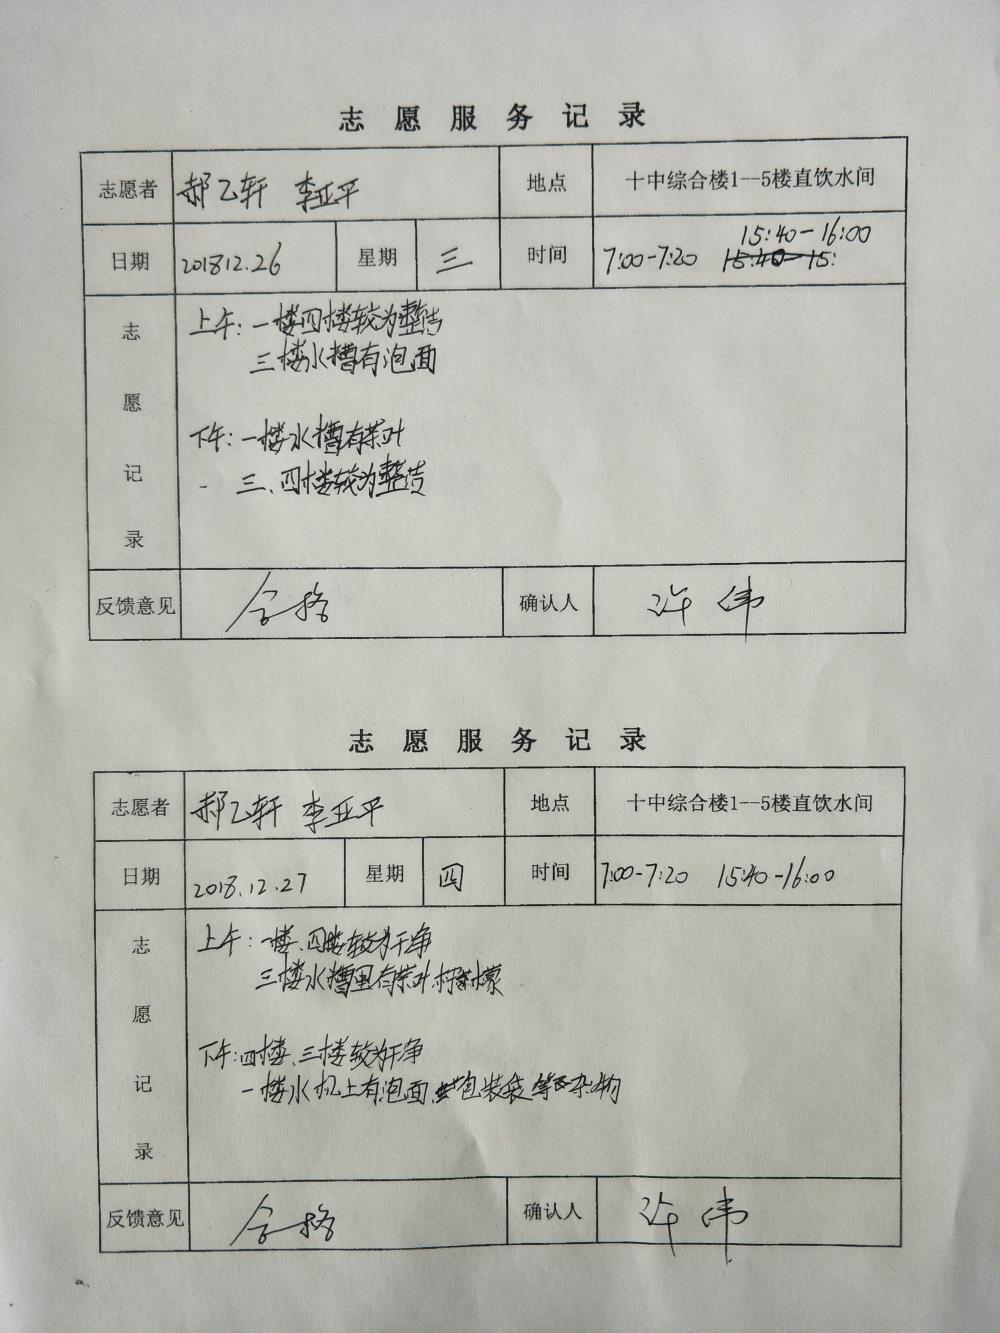 志愿服务记录
志愿者 郝乙轩 李亚平 地点 十中综合楼1--5楼直饮水间
15:40-16:00
日期 201812.26 星期 三 时间 7:00-7:20 15:40-15:
志愿记录
上午:一楼四楼较为整洁
三楼水槽有泡面
下午:一楼水槽有茶叶
三、四楼较为整洁
反馈意见 合格 确认人 许伟
志愿服务记录
志愿者 郝乙轩 李亚平 地点 十中综合楼1--5楼直饮水间
日期 2018.12.27 星期 四 时间 7:00-7:20 15:40-16:00
志愿记录
上午:一楼、四楼较为干净
三楼水槽里有茶叶柠檬
下午:四楼、三楼较为干净
一楼水机上有泡面、包装袋等杂物
反馈意见 合格 确认人 许伟